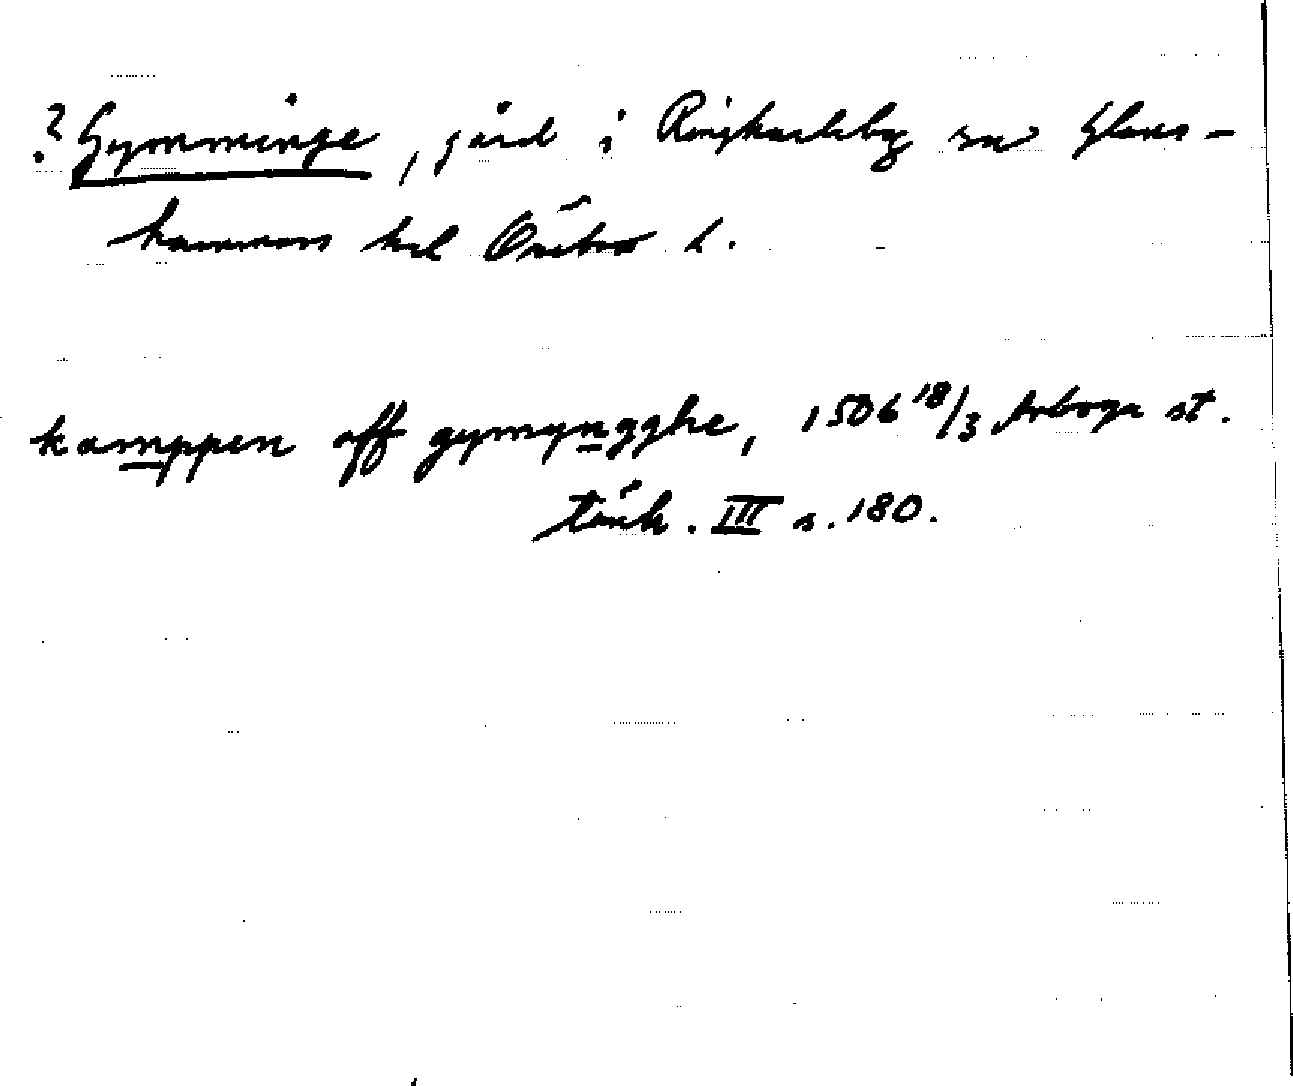 ? Gymminge, gård i Ringkarleby sn Glans-
hammars hd Örebro l.
kamppen off gymyngghe, 1506 18/3 Arboga st.
tänk. III s. 180.